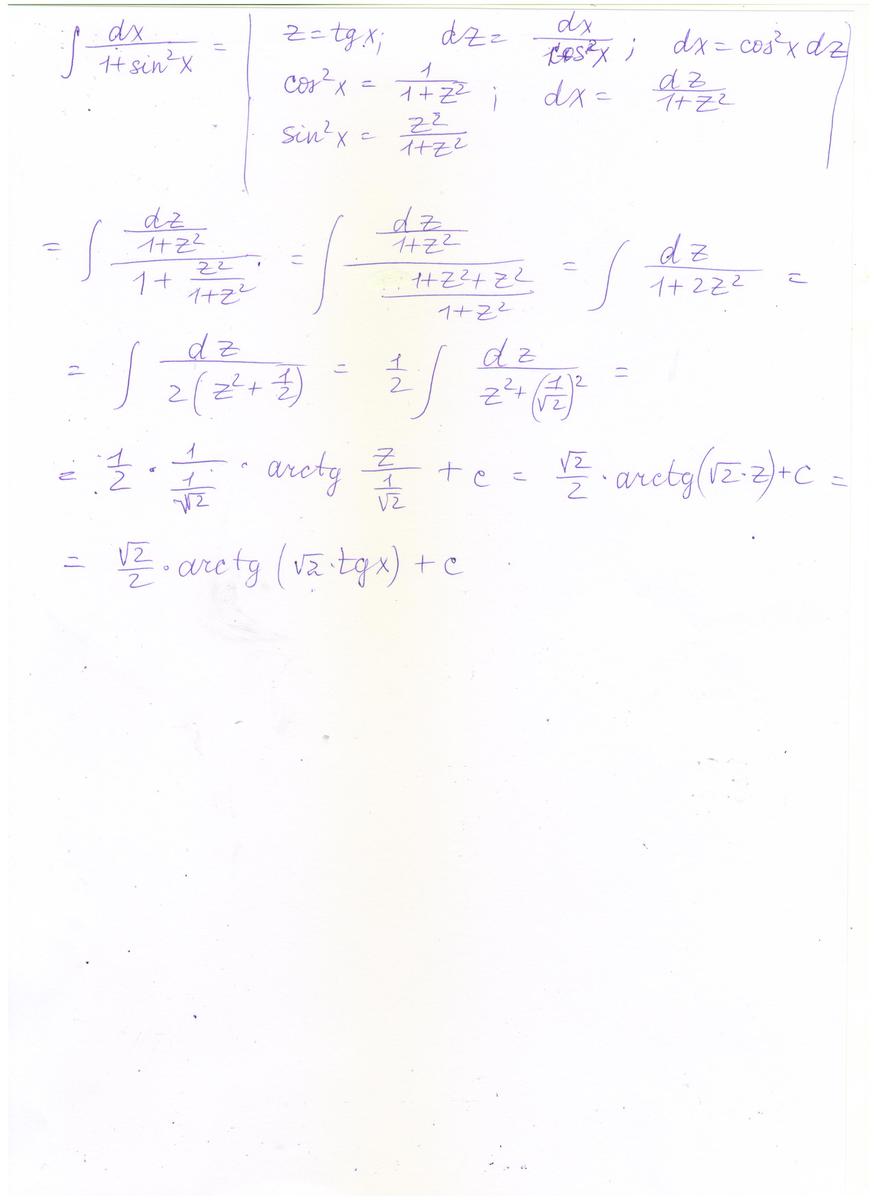 ∫ dx/(1+sin²x) = | z = tg x; dz = dx/cos²x; dx = cos²x dz |
cos²x = 1/(1+z²); dx = dz/(1+z²)
sin²x = z²/(1+z²)
= ∫ (dz/(1+z²))/(1 + z²/(1+z²)) = ∫ (dz/(1+z²))/((1+z²+z²)/(1+z²)) = ∫ dz/(1+2z²) =
= ∫ dz/(2(z² + 1/2)) = 1/2 ∫ dz/(z² + (1/√2)²) =
= 1/2 · 1/(1/√2) · arctg z/(1/√2) + c = √2/2 · arctg(√2·z) + C =
= √2/2 · arctg (√2·tg x) + C